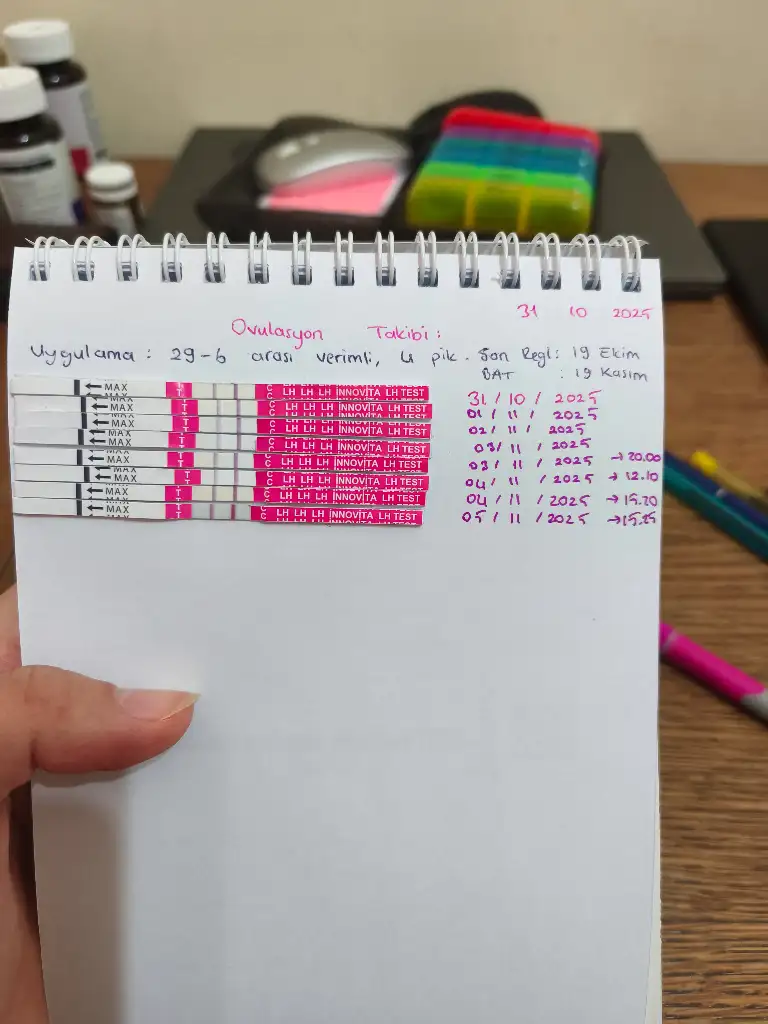 31 10 2025
Ovulasyon Takibi:
Uygulama: 29-6 arası verimli, 4 pik. Son Regl: 19 Ekim
BAT : 19 Kasım
← MAX T C LH LH LH INNOVITA LH TEST 31/10/2025
← MAX T C LH LH LH INNOVITA LH TEST 01/11/2025
← MAX T C LH LH LH INNOVITA LH TEST 02/11/2025
← MAX T C LH LH LH INNOVITA LH TEST 03/11/2025
← MAX T C LH LH LH INNOVITA LH TEST 03/11/2025 →20.00
← MAX T C LH LH LH INNOVITA LH TEST 04/11/2025 →12.10
← MAX T C LH LH LH INNOVITA LH TEST 04/11/2025 →15.20
← MAX T C LH LH LH INNOVITA LH TEST 05/11/2025